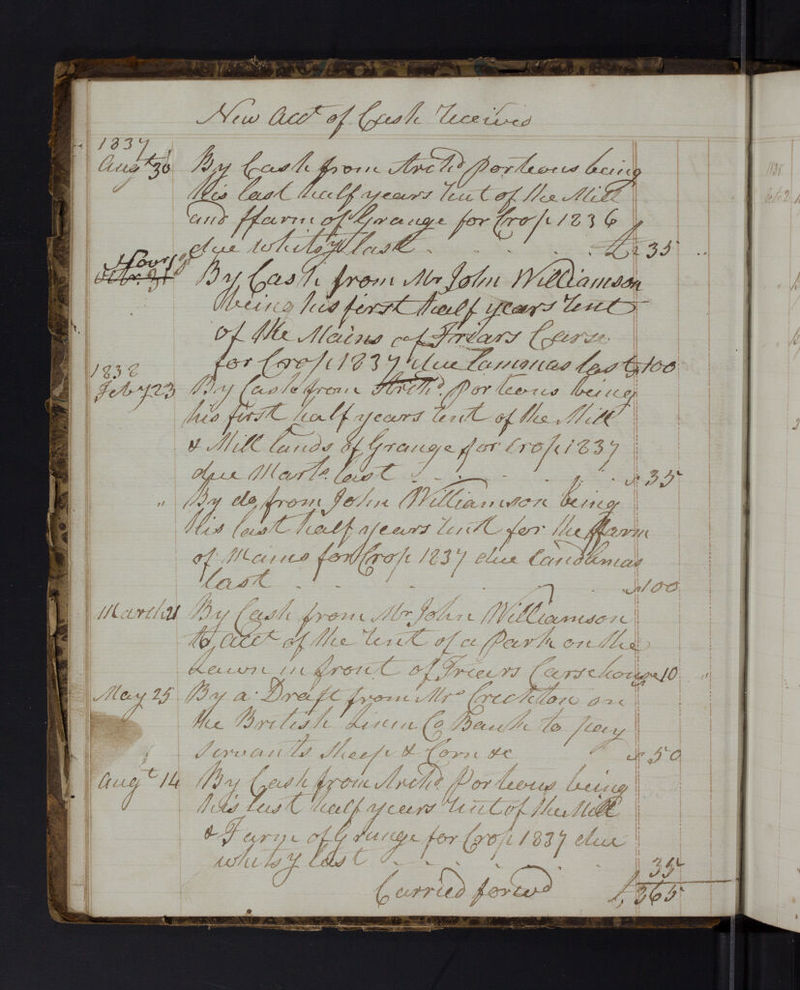 New Acct of Cash Received
1837
Augt 30 By Cash from Archd Porteous being
his last half years rent of the Mill
and ffarm of Grange for Crop 1836
due whitsy last £ 35 ..
By Cash from Mr John Williamson
being his first half years rent
of the Mains of Friars Carse
for Crop 1837 due Lammas last £ 100
1838
Feby 23 By Cash from Archd. Porteous being
his first half years rent of the Mill
& Mill lands of Grange for Crop 1837
due Marts. last 35
" By do from John Williamson being
his last half years rent for the ffarm
of Mains for Crop 1837 due Candlemas
last 100
March 21 By Cash from Mr John Williamson
to acct of the rent of a Park on the
Lawn in front of Friars Carse house 10 "
May 25 By a Draft from Mrs Crichton on
the British Linen Co Bank to pay
Servants Sheep & Corn &c 50
Augt 14 By Cash from Archd Porteous being
his last half years rent of the Mill
& Farm of Grange for Crop 1837 due
whitsy last 35
Carried forwd £ 365